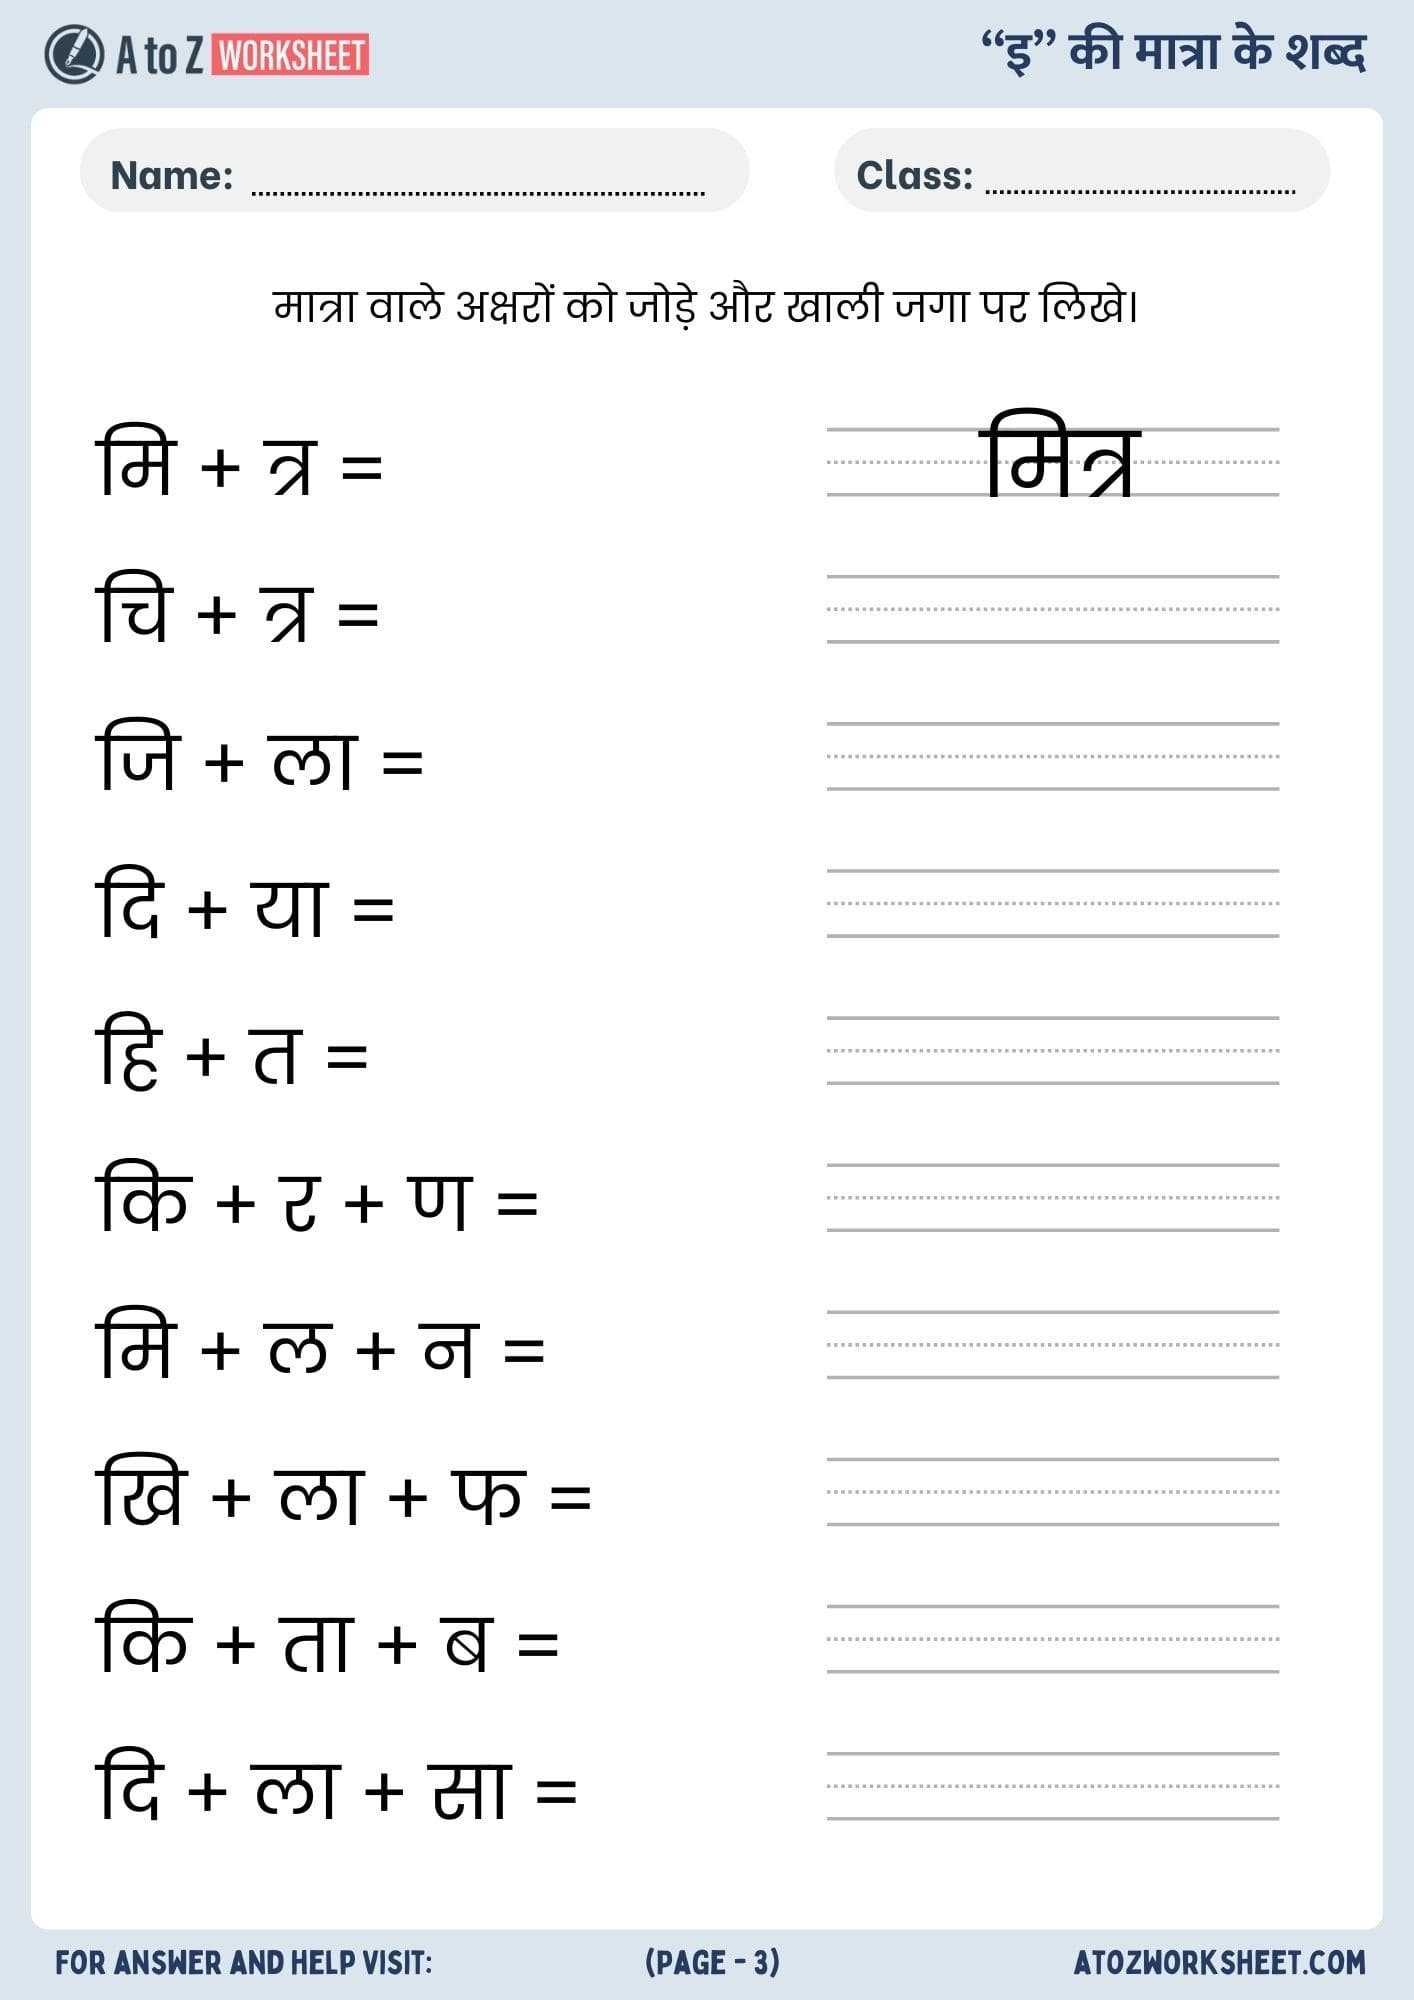 A to Z WORKSHEET
“इ” की मात्रा के शब्द
Name: Class:
मात्रा वाले अक्षरों को जोड़े और खाली जगा पर लिखे।
मि + त्र = मित्र
चि + त्र =
जि + ला =
दि + या =
हि + त =
कि + र + ण =
मि + ल + न =
खि + ला + फ =
कि + ता + ब =
दि + ला + सा =
FOR ANSWER AND HELP VISIT: (PAGE - 3) ATOZWORKSHEET.COM